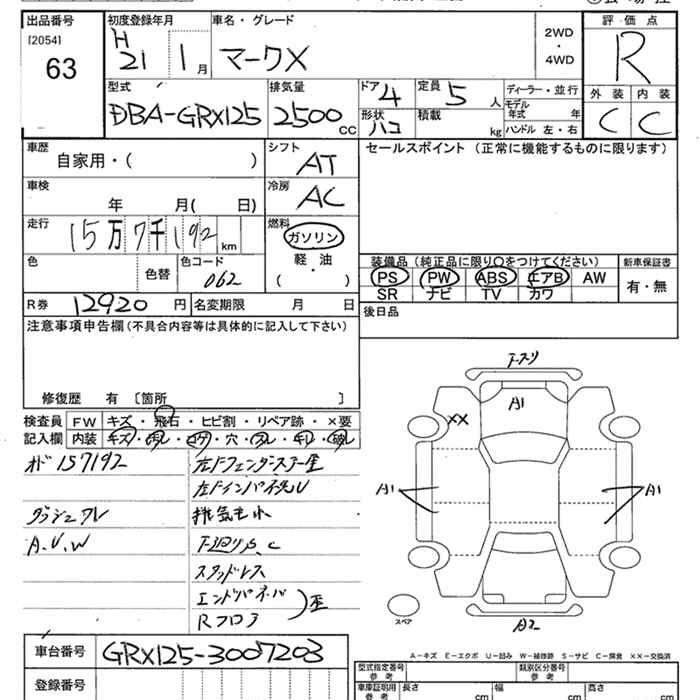 出品番号
[2054]
63
初度登録年月
H
21 1月
車名・グレード
マークX
2WD
・
4WD
評価点
R
型式
DBA-GRX125
排気量
2500
cc
ドア
4
形状
ハコ
定員
5
人
積載
kg
ディーラー・並行
モデル
年式 年
ハンドル 左・右
外装 内装
C C
車歴
自家用・( )
シフト
AT
セールスポイント (正常に機能するものに限ります)
車検
年 月( 日)
冷房
AC
走行
15万7千192
km
燃料
ガソリン
軽・油
( )
色
色替
色コード
062
装備品(純正品に限り○をつけてください)
PS PW ABS エアB AW
SR ナビ TV カワ
新車保証書
有・無
R券 12920 円
名変期限 月 日
後日品
注意事項申告欄(不具合内容等は具体的に記入して下さい)
修復歴 有 〔箇所 〕
検査員 FW キズ・飛石・ヒビ割・リペア跡・×要
記入欄 内装 キズ・汚レ・コゲ・穴・スレ・キレ・破レ
オド 157192
ダッシュワレ
A.U.W
左Fフェンダーステー歪
左Fインパネ曲り
排気もれ
下廻りS,C
スタッドレス
エンドパネル
Rフロア
歪
A1
XX
A1
A1
A2
スペア
A-キズ E-エクボ U-凹 W-補修跡 S-サビ C-腐食 XX-交換済
車台番号
GRX125-3007203
登録番号
型式指定番号
参考
類別区分番号
参考
車庫証明用
参考
長さ
cm
幅
cm
高さ
cm